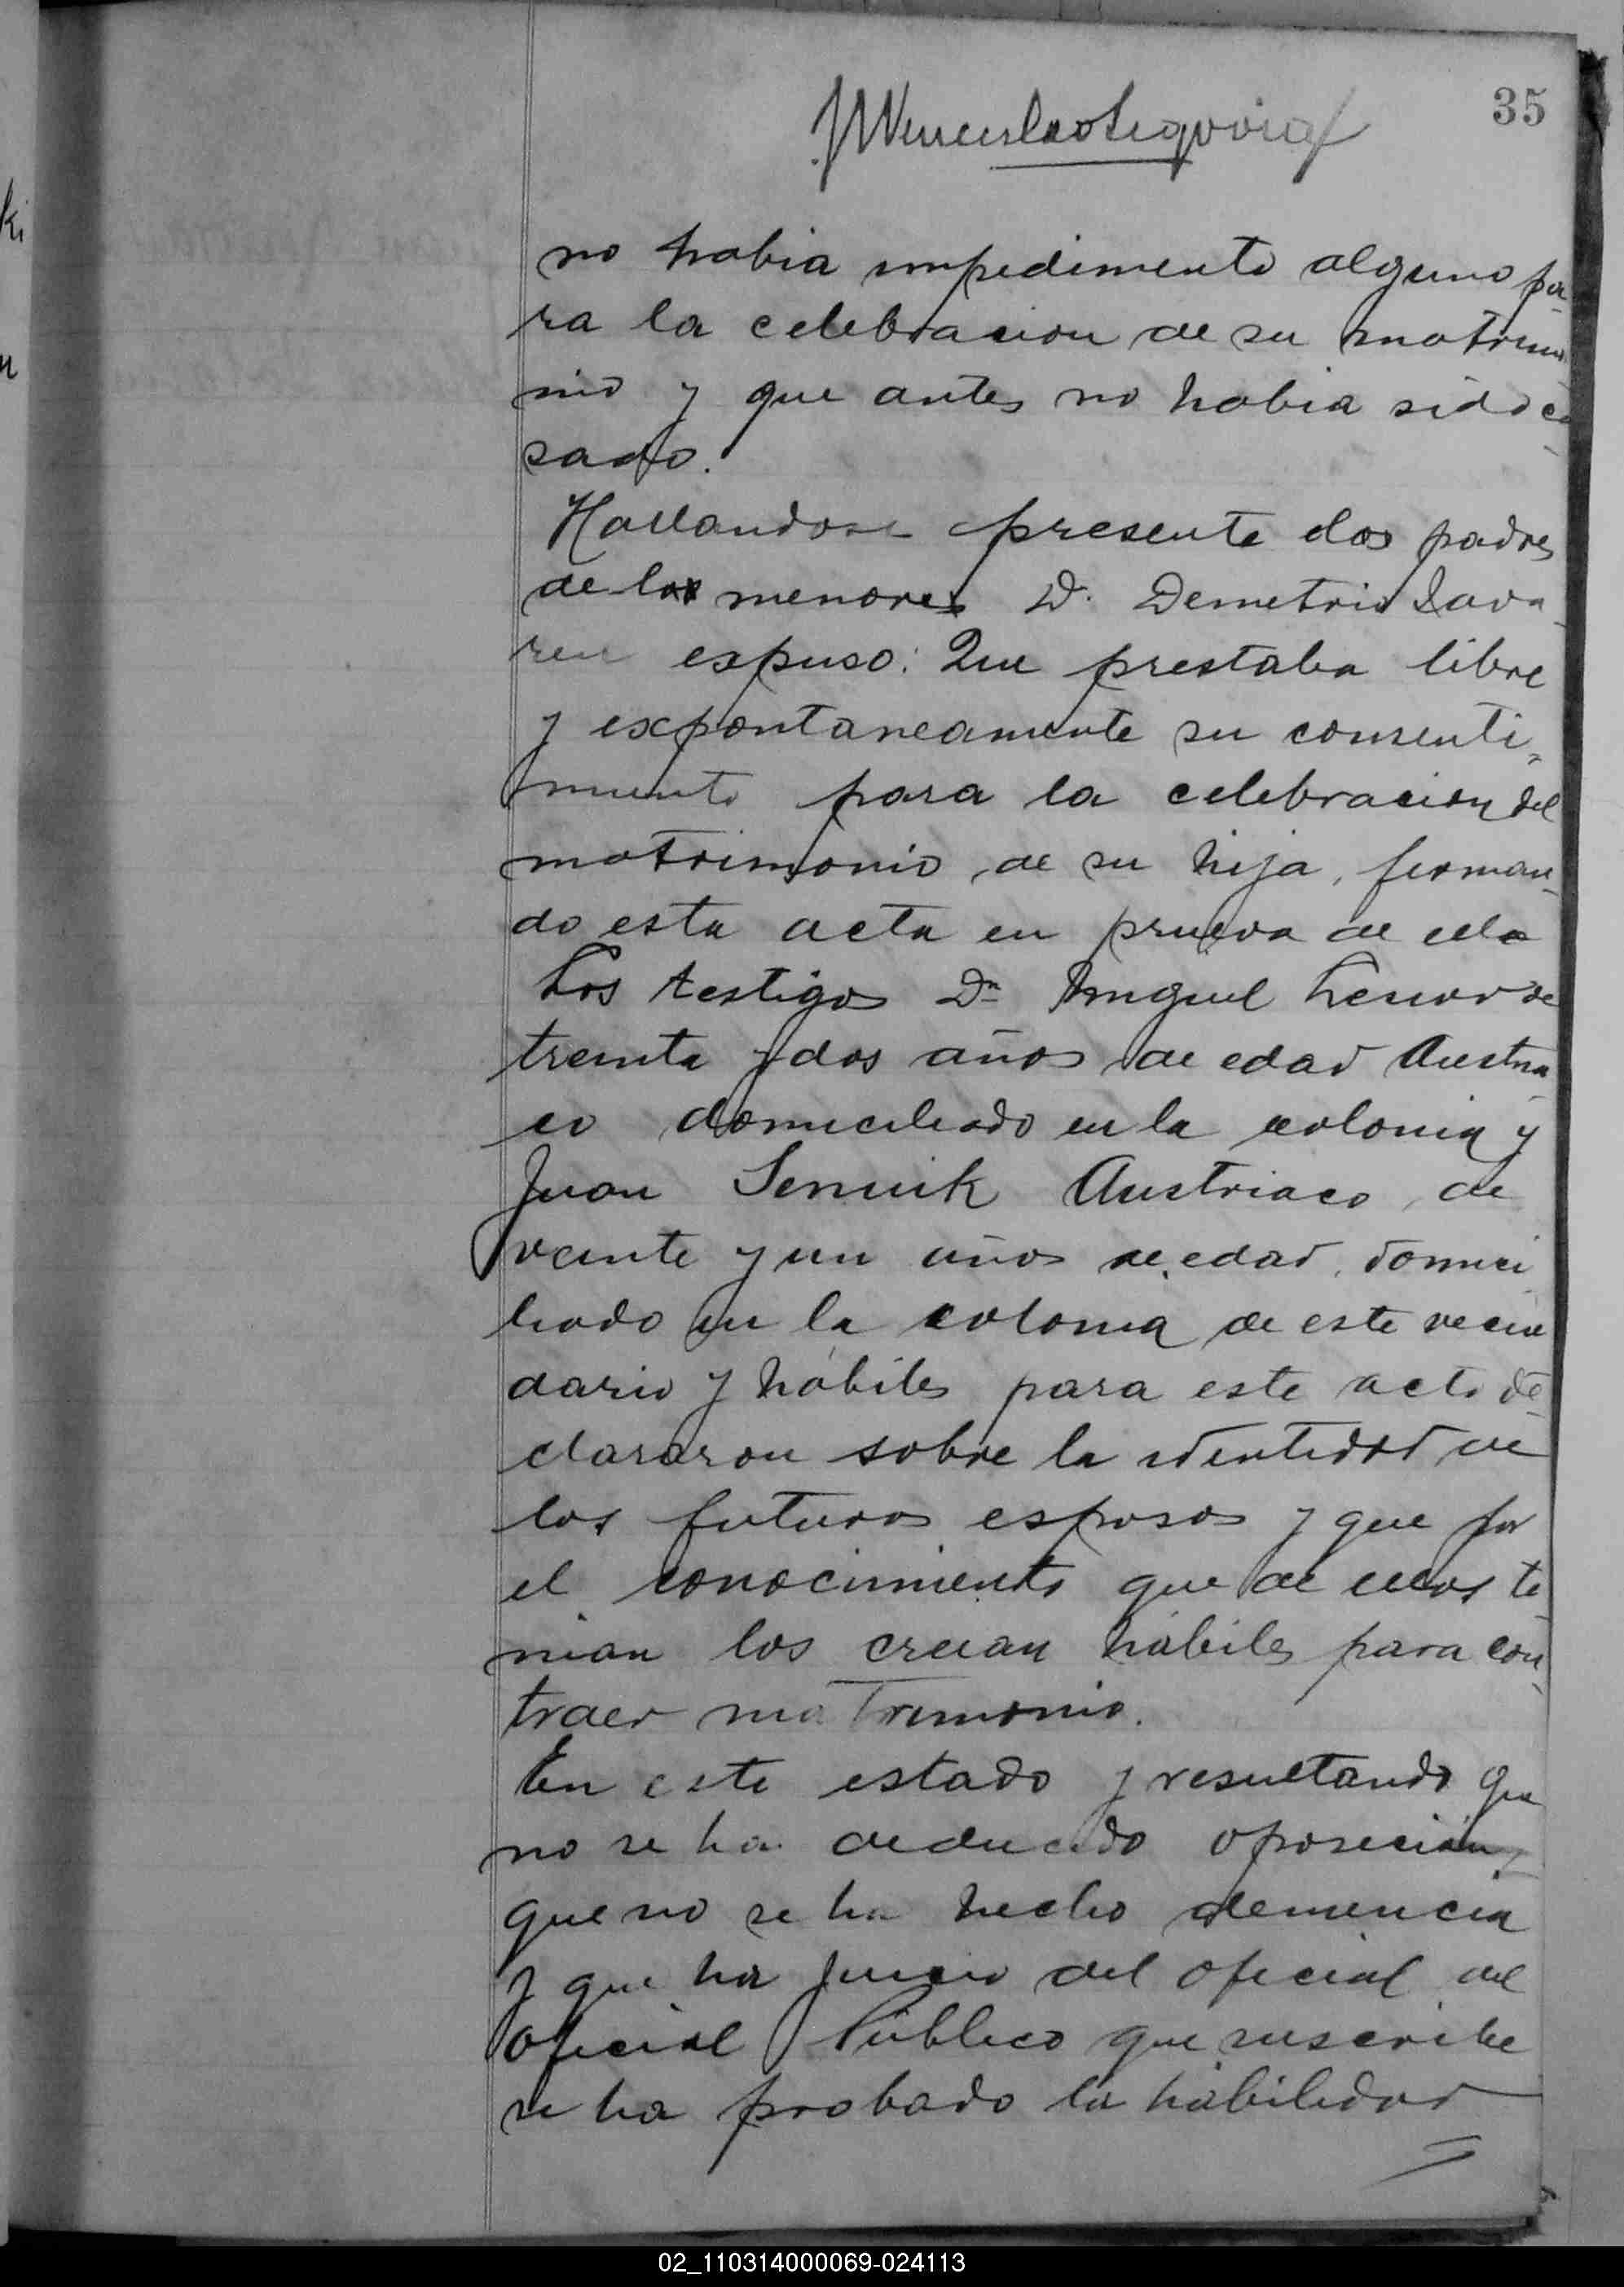 35
no habia impedimento alguno pa
ra la celebracion de su matrimo
nio y que antes no habia sido ca
sado.
Hallandose presente los padres
de los menores D. Demetrio
expuso: Que prestaba libre
y expontaneamente su consenti-
miento para la celebracion del
matrimonio de su hija, firman-
do esta acta en prueva de ello
Los testigos Dn Miguel de
treinta y dos años de edad Austria
co domiciliado en la colonia y
Juan Semnik Austriaco de
veinte y un años de edad, domici
liado en la colonia de este vecin
dario y hábiles para este acto de-
clararon sobre la identidad de
los futuros esposos y que por
el conocimiento que de ellos te
nian los creian hábiles para con-
traer matrimonio.
En este estado y resultando que
no se ha deducido oposición,
que no se ha hecho denuncia
y que ha juicio del oficial del
oficial Público que suscribe
se ha probado la habilidad
02_110314000069-024113